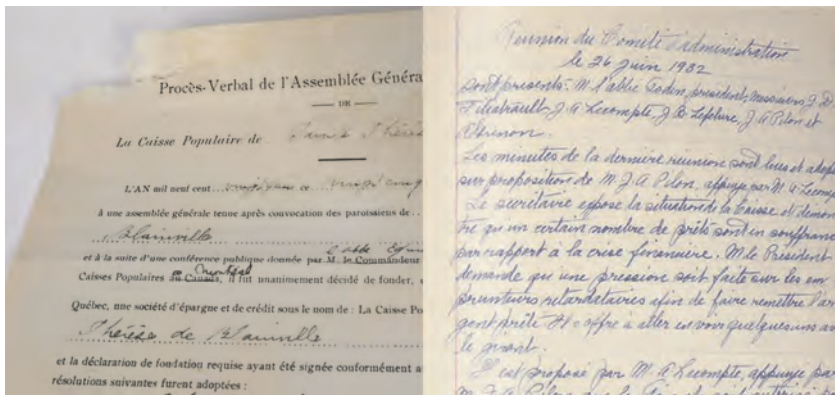 Procès-Verbal de l'Assemblée Généra
— DE —
La Caisse Populaire de Sainte Thérès
L'AN mil neuf cent vingt cinq
à une assemblée générale tenue après convocation des paroissiens de
Blainville
et à la suite d'une conférence publique donnée par M. le Commandeur
Caisses Populaires du Canada, il fut unanimement décidé de fonder,
Montréal
Québec, une société d'épargne et de crédit sous le nom de : La Caisse Po
Thérèse de Blainville
et la déclaration de fondation requise ayant été signée conformément a
résolutions suivantes furent adoptées :
Réunion du Comité d'administration
le 26 juin 1932
Sont présents: M. l'abbé Godin, président, messieurs J. D.
Filiatrault, J. A. Lecompte, J. B. Lefebvre, J. A. Pilon et
Les minutes de la dernière réunion sont lues et adop
sur proposition de M. J. A. Pilon, appuyé par M. A. Lecomp
Le secrétaire expose la situation de la Caisse et démon
tre qu'un certain nombre de prêts sont en souffran
par rapport à la crise financière. M. le Président
demande qu'une pression soit faite sur les em
prunteurs retardataires afin de faire remettre l'ar
gent prêté. Il offre à aller en voir quelques uns
Il est proposé par M. A. Lecompte, appuyé par
M. J. A. Pilon que le